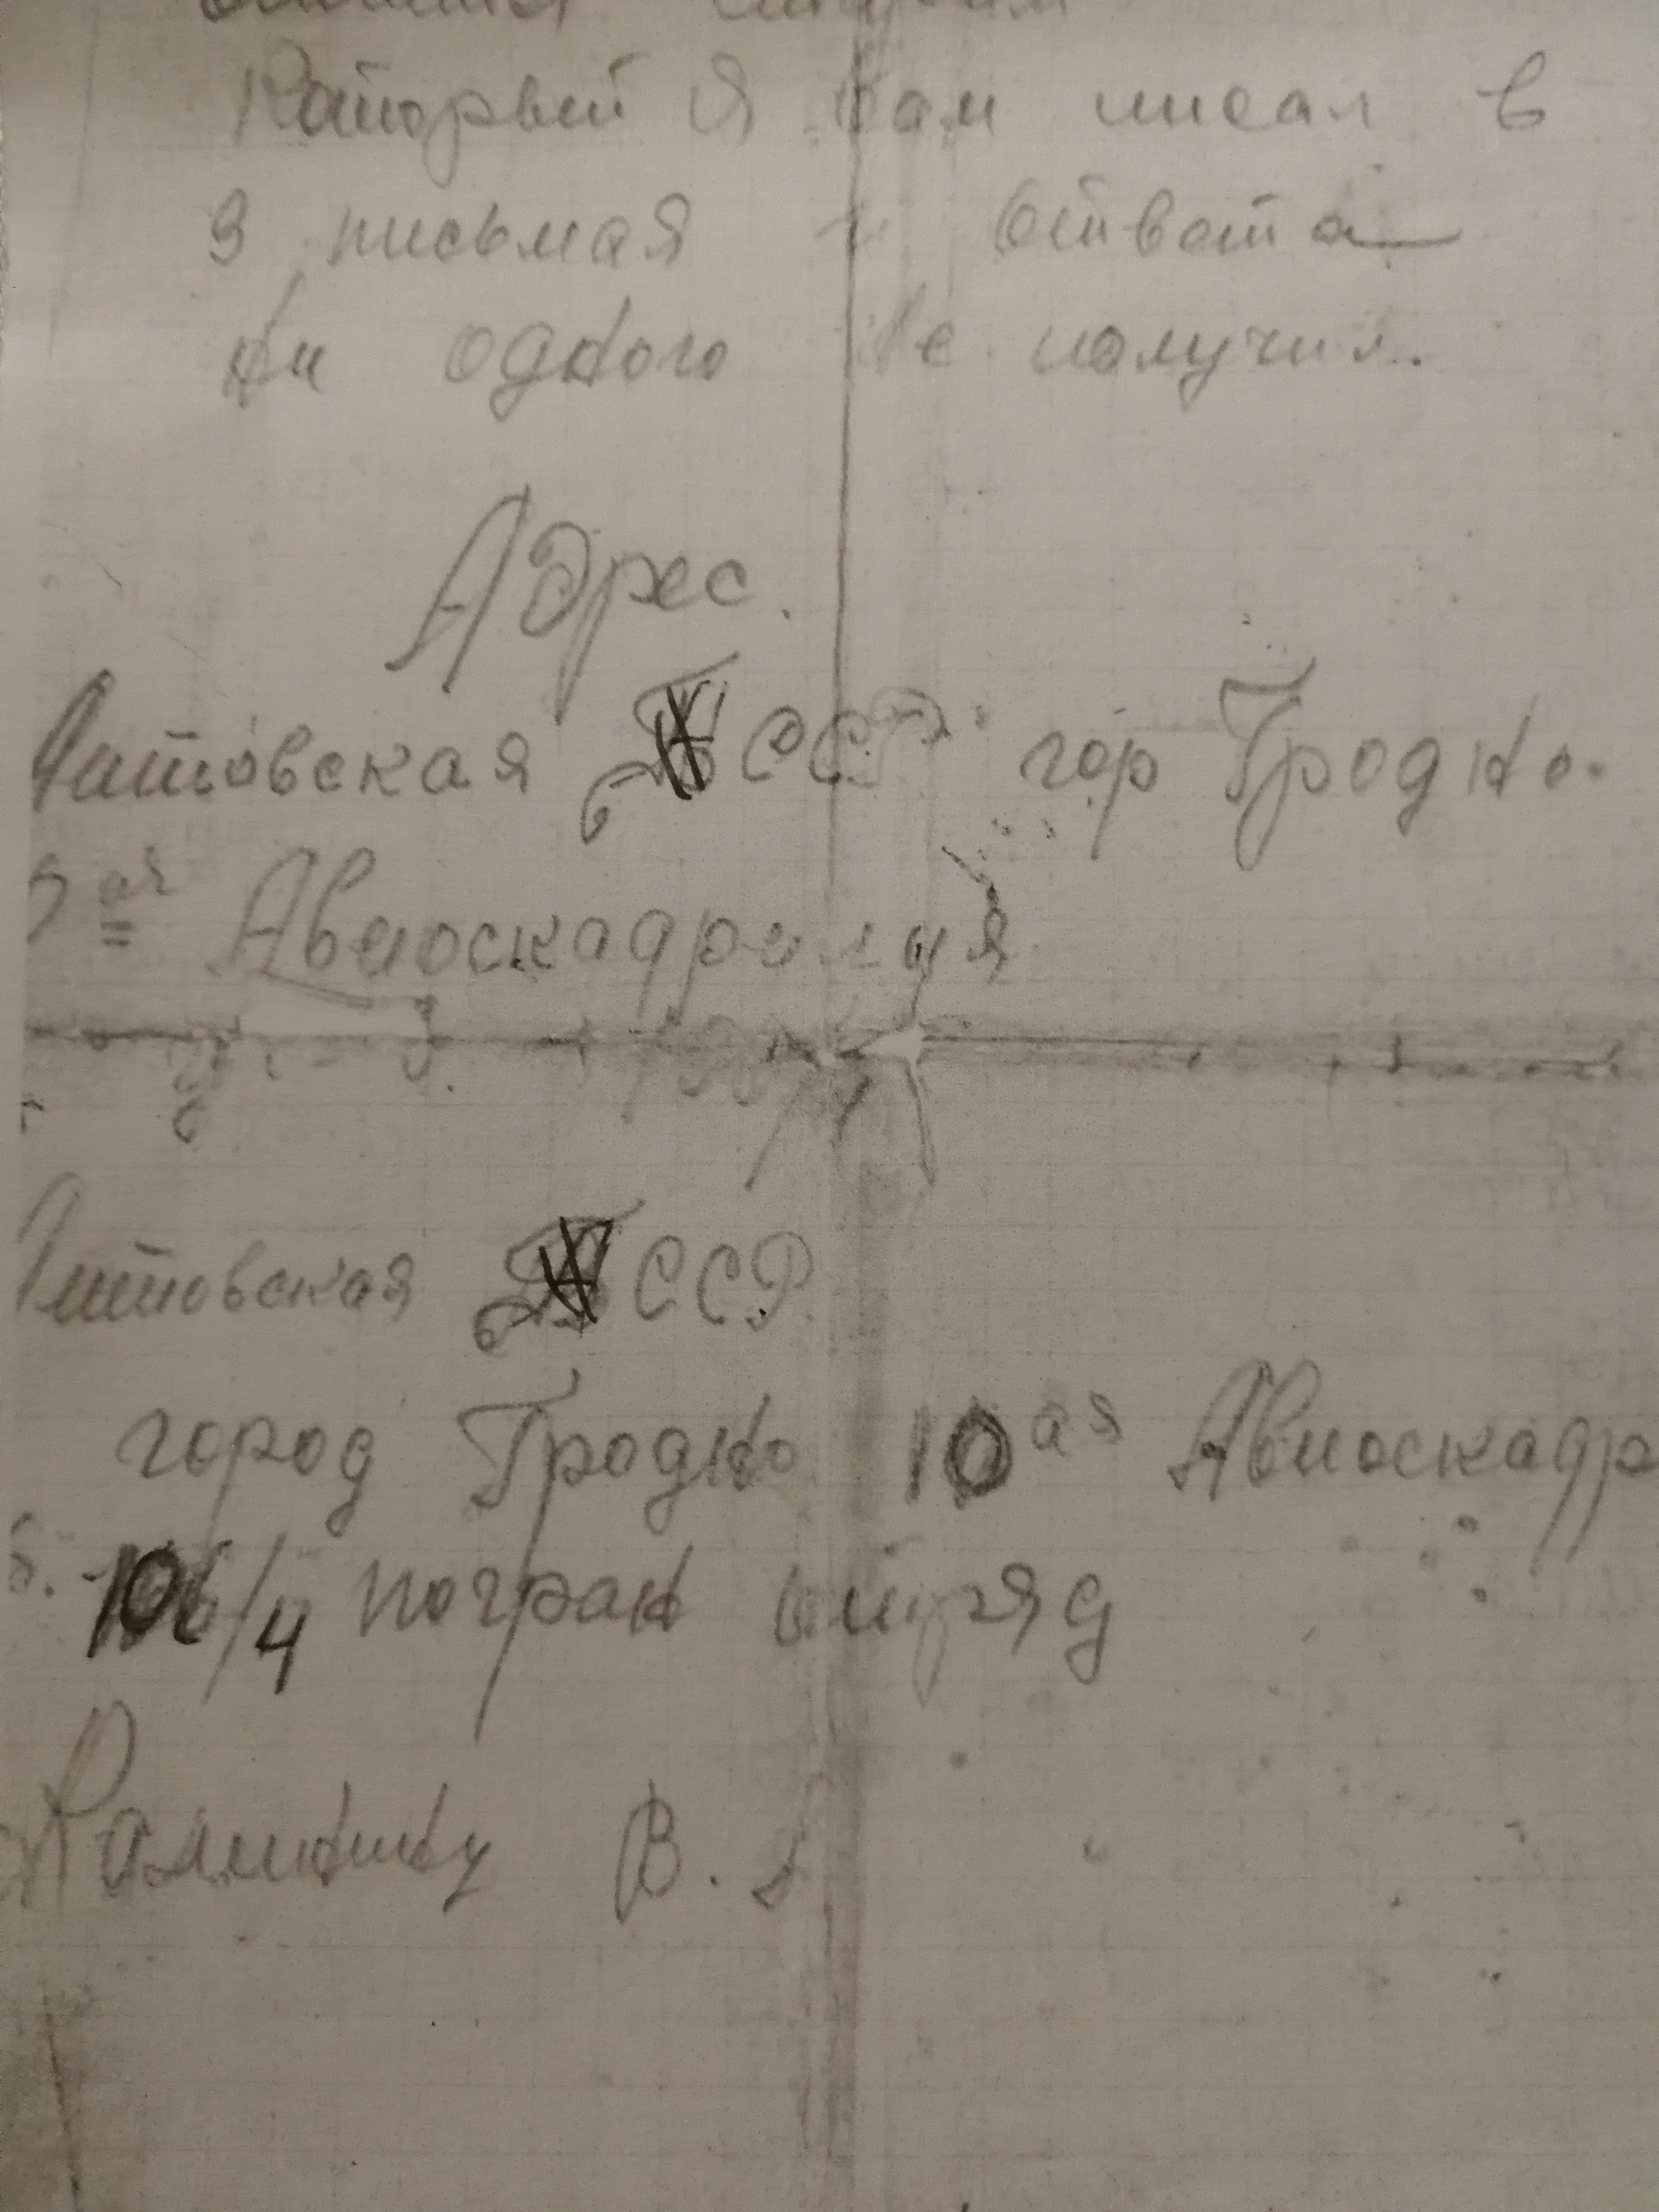 Который я вам писал в
3 письмая ответа
Ни одного не получил.
Адрес.
Литовская ССР гор Гродно.
ая Авиоскадрилия
Литовская ССР
город Гродно 10ая Авиоскадр
106/4 погран отряд
Калинину В.